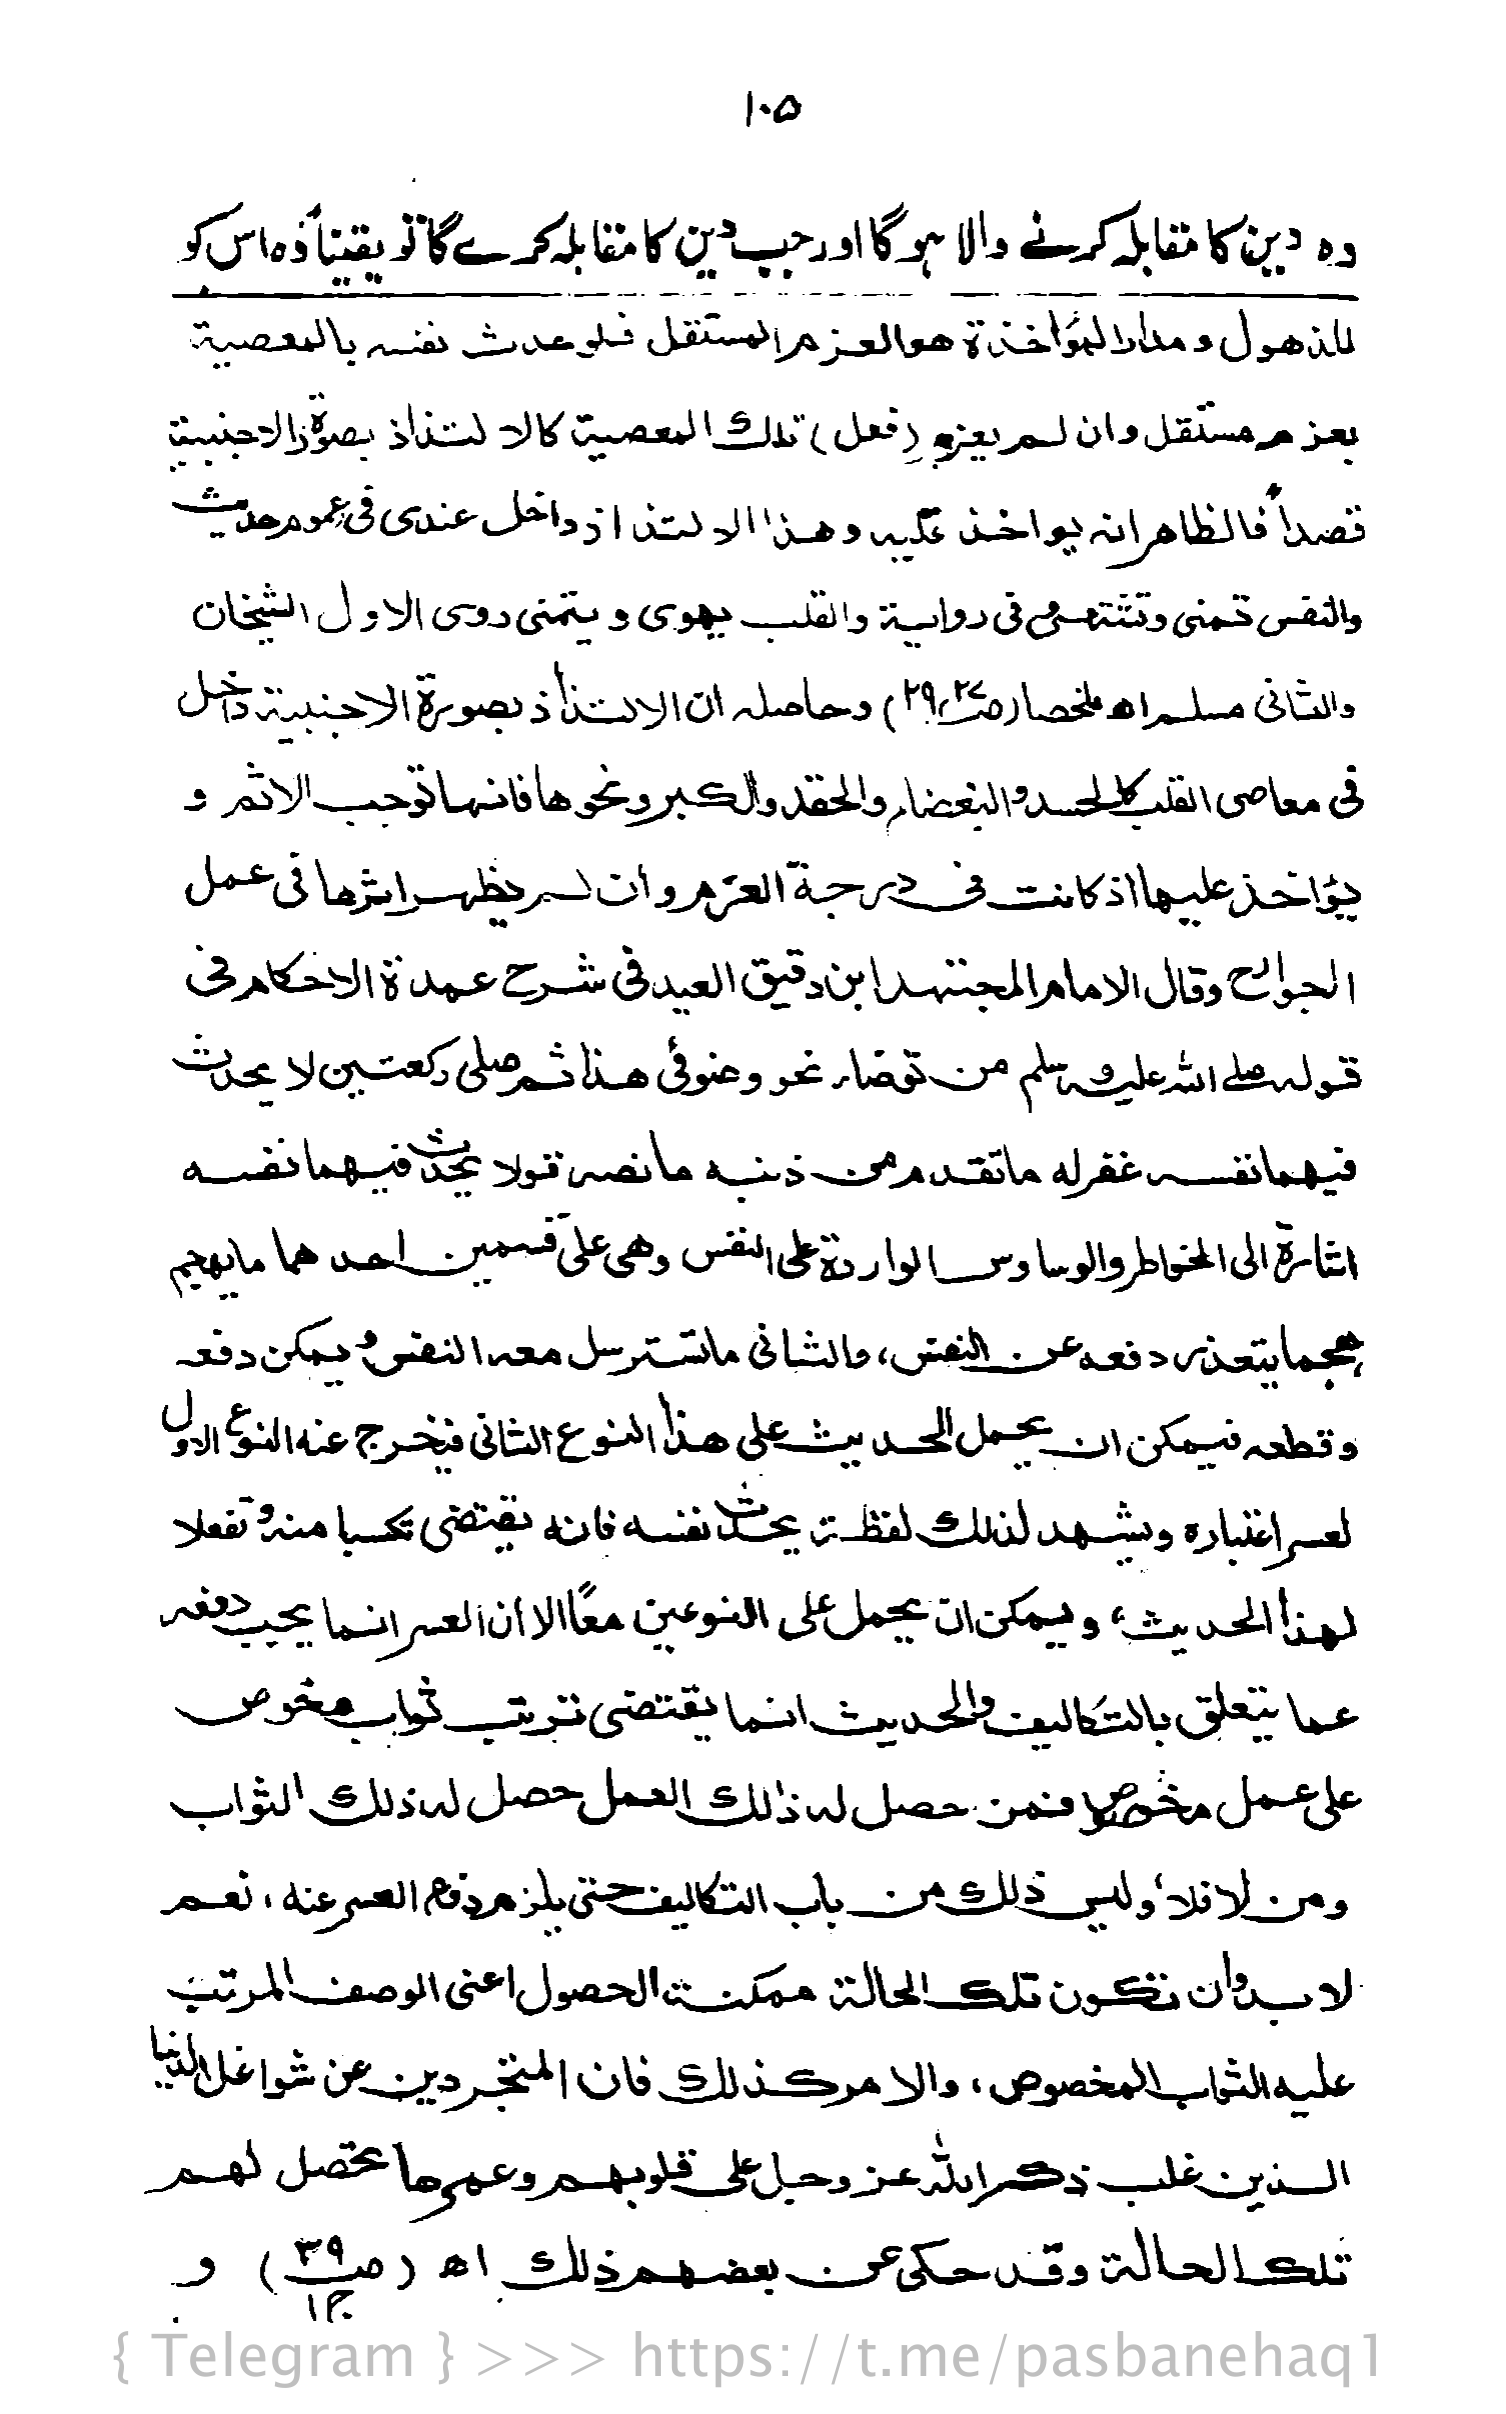 ۱۰۵
وہ دین کا مقابلہ کرنے والا ہوگا اور جب دین کا مقابلہ کرے گا تو یقیناً وہ اس کو
للذهول ومدار المؤاخذة هو العزم المستقل فلو حدث نفسه بالمعصية
بعزم مستقل وان لم يعزم (فعل) تلك المعصية كالالتذاذ بصورة الاجنبية
قصداً فالظاهر انه يواخذ عليه وهذا الالتذاذ داخل عندى فى عموم حديث
والنفس تمنى وتشتهى وفى رواية والقلب يهوى ويتمنى روى الاول الشيخان
والثانى مسلم اھ ملخصا (ص۲۹،۲۸) وحاصله ان الالتذاذ بصورة الاجنبية داخل
فى معاصى القلب كالحسد والبغضاء والحقد والكبر ونحوها فانها توجب الاثم و
يؤاخذ عليها اذ كانت فى درجة العزم وان لم يظهر اثرها فى عمل
الجوارح وقال الامام المجتهد ابن دقيق العيد فى شرح عمدة الاحكام فى
قوله صلى الله عليه وسلم من توضاء نحو وضوئى هذا ثم صلى ركعتين لا يحدث
فيهما نفسه غفر له ما تقدم من ذنبه ما نصه قولا يحدث فيهما نفسه
اشارة الى الخواطر والوساوس الواردة على النفس وهى على قسمين احدهما ما يهجم
هجما يتعذر دفعه عن النفس، والثانى ما تسترسل معه النفس ويمكن دفعه
وقطعه فيمكن ان يحمل الحديث على هذا النوع الثانى فيخرج عنه النوع الاول
لعسر اعتباره ويشهد لذلك لفظة يحدث نفسه فانه يقتضى تكسبا منه وتفعلا
لهذا الحديث، ويمكن ان يحمل على النوعين معًا الا ان العسر انما يجب دفعه
عما يتعلق بالتكاليف والحديث انما يقتضى ترتب ثواب مخصوص
على عمل مخصوص فمن حصل له ذالك العمل حصل له ذلك الثواب
ومن لا فلا، وليس ذلك من باب التكاليف حتى يلزم دفع العسر عنه، نعم
لابد وان تكون تلك الحالة ممكنة الحصول اعنى الوصف المرتب
عليه الثواب المخصوص، والامر كذلك فان المتجردين عن شواغل الدنيا
الذين غلب ذكر الله عز وجل على قلوبهم وعمرها تحصل لهم
تلك الحالة وقد حكى عن بعضهم ذلك اھ (ص۳۹ ج۱) و
{ Telegram } >>> https://t.me/pasbanehaq1